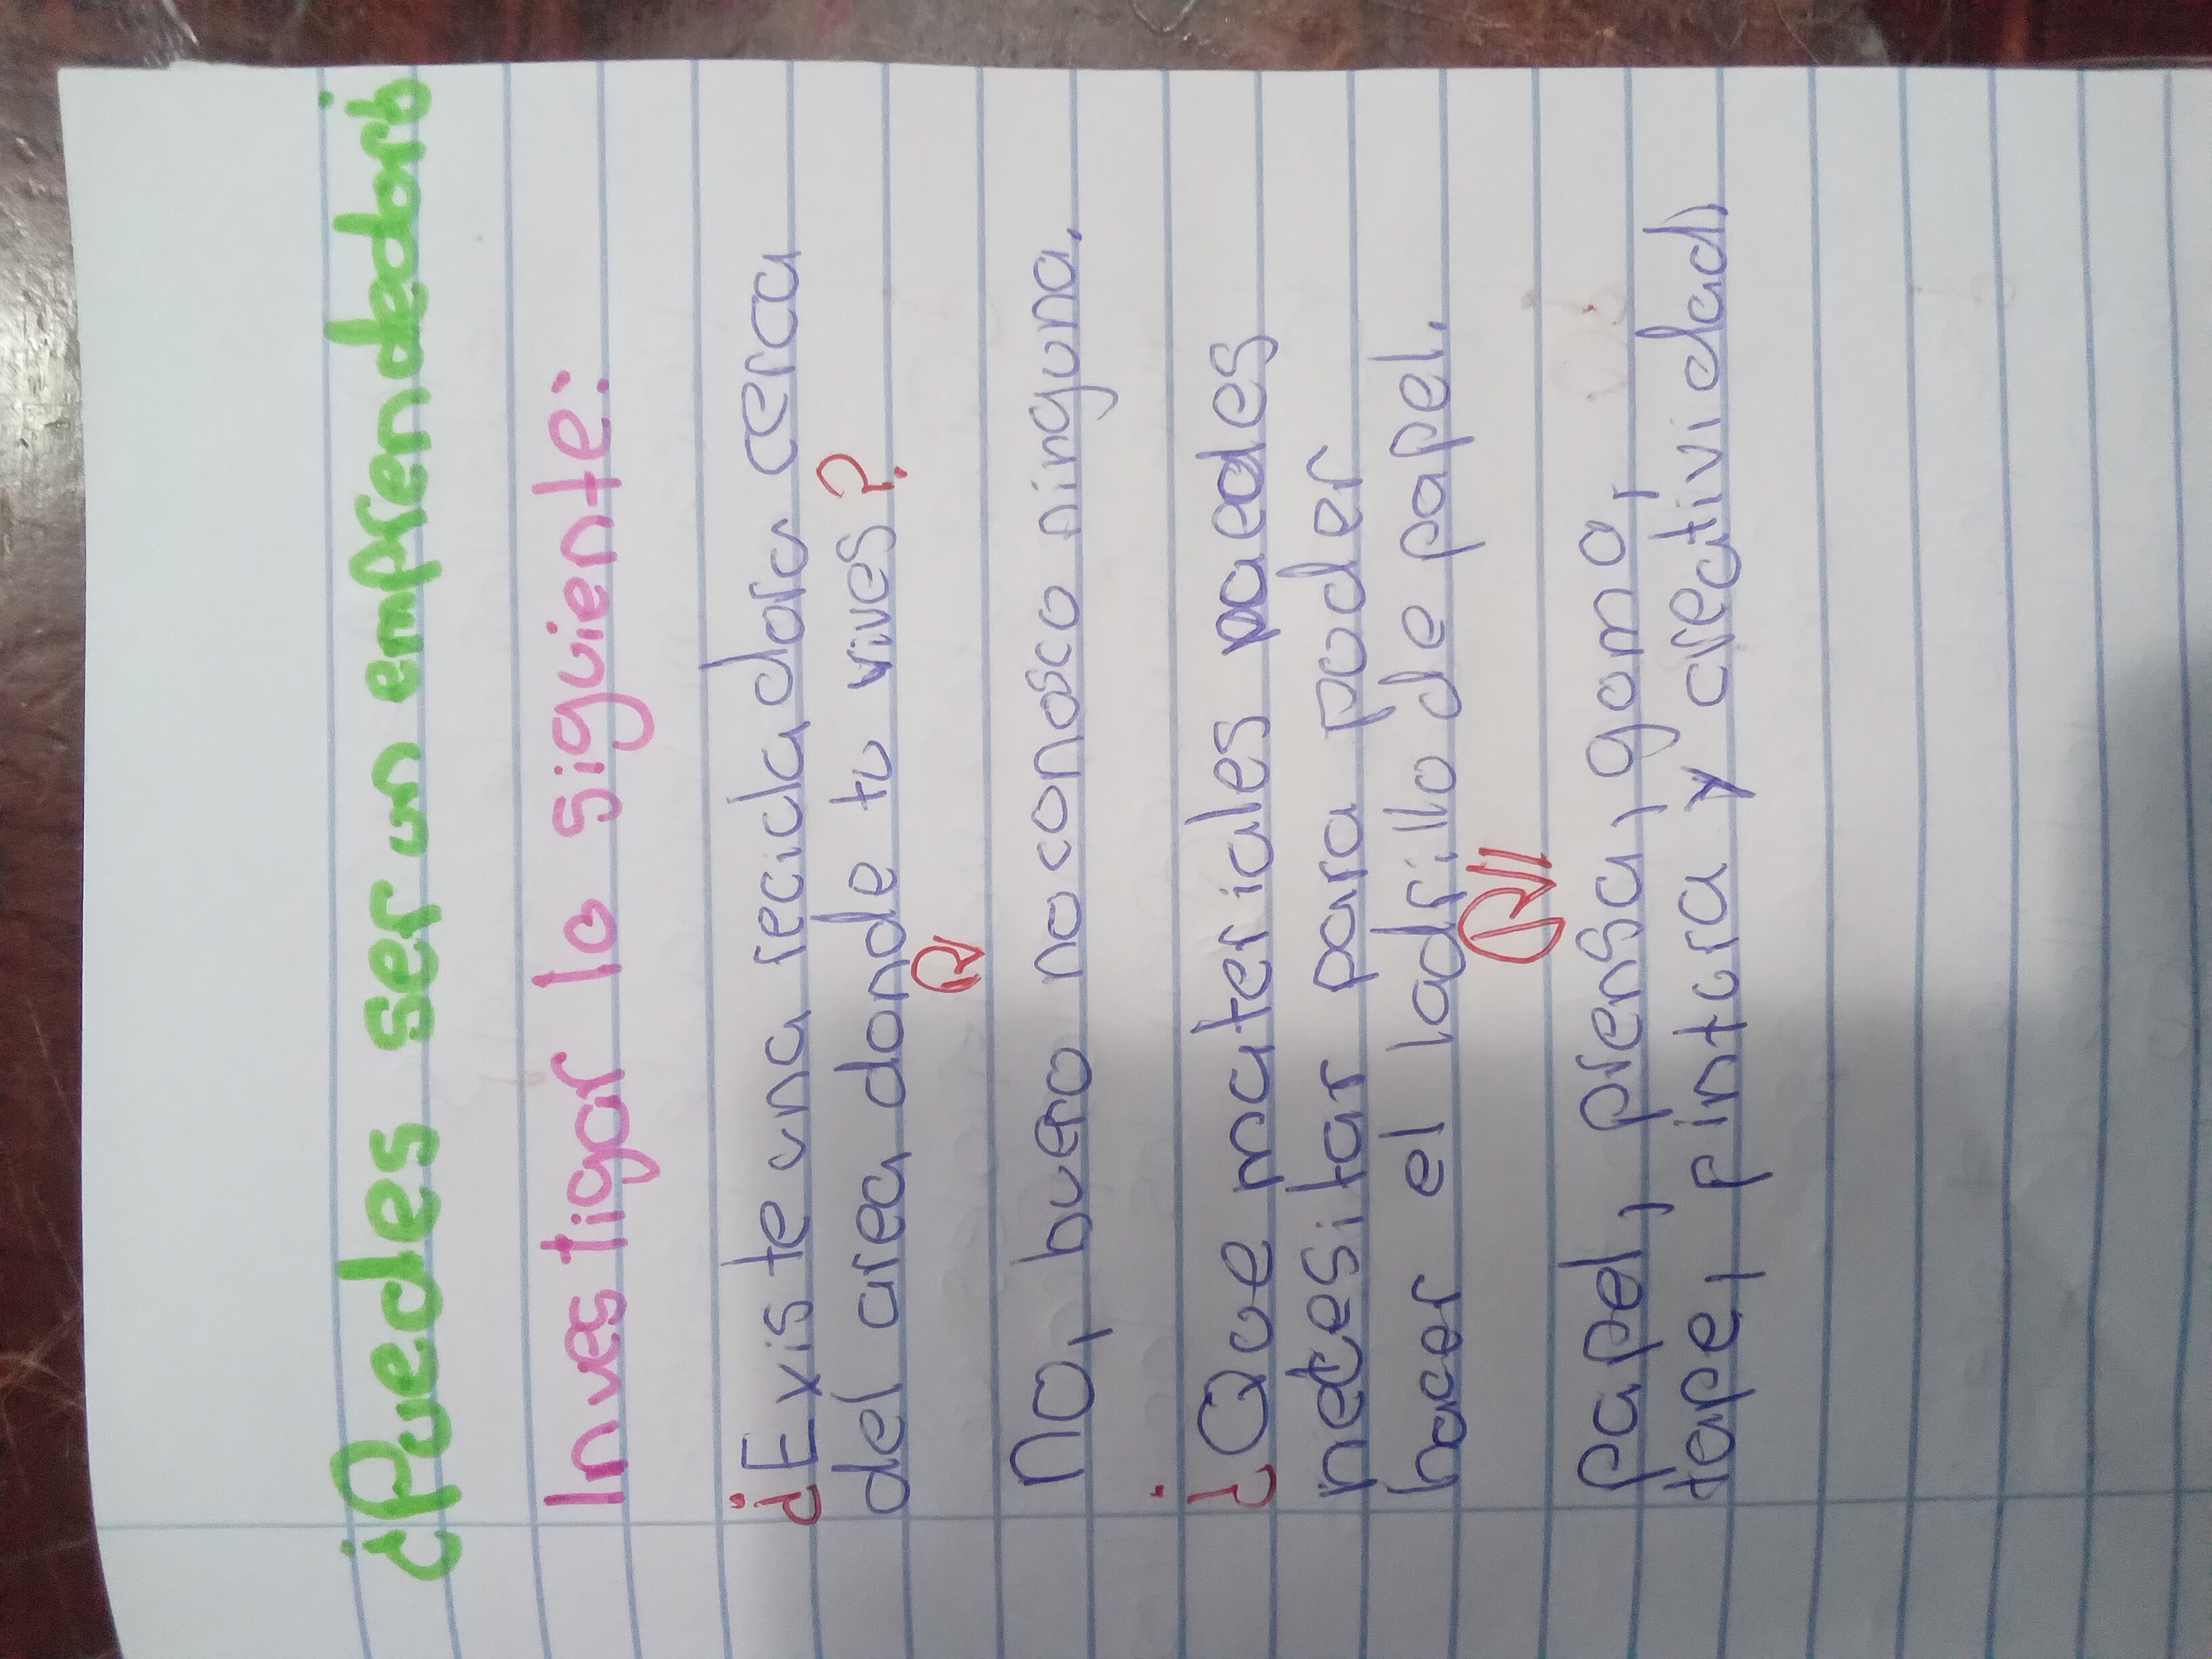 ¿Puedes ser un emprendedor?
Investigar lo siguiente:
¿Existe una recidadora cerca
del area donde tu vives?
R//
No, bueno no conosco ninguna.
¿Que materiales puedes
netesitar para poder
hacer el ladrillo de papel.
R//
Papel, prensa, goma,
tape, pintura y creatividad